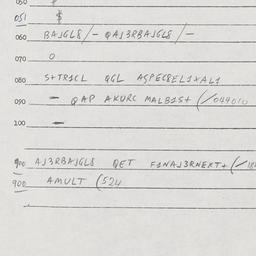 050 $
051 $
060 BAJGL8/- QAJ3RBAJGL8/-
070 O
080 S+TR1CL QGL ASPEC8EL1XAL1
090 - QAP AKURC MALB1S+(/049010
100 -
900 AJ3RBAJGL8 QET F1NAJ3RNEXT+(/
900 AMULT (524